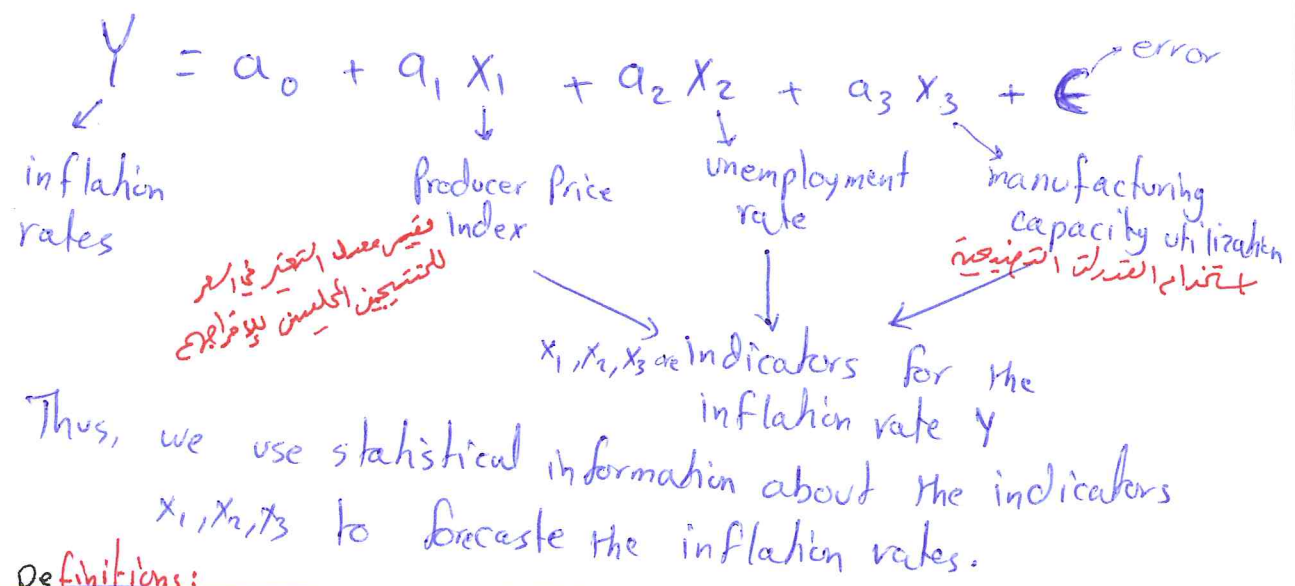 Y = a₀ + a₁ X₁ + a₂ X₂ + a₃ X₃ + ϵ
error
inflation
rates
Producer Price
Index
unemployment
rate
manufacturing
capacity utilization
معدل التغير في
للمنتجين المحليين
استخدام القدرات التصنيعية
x₁, x₂, x₃ are indicators for the
inflation rate Y
Thus, we use statistical information about the indicators
x₁, x₂, x₃ to forecaste the inflation rates.
Definitions: